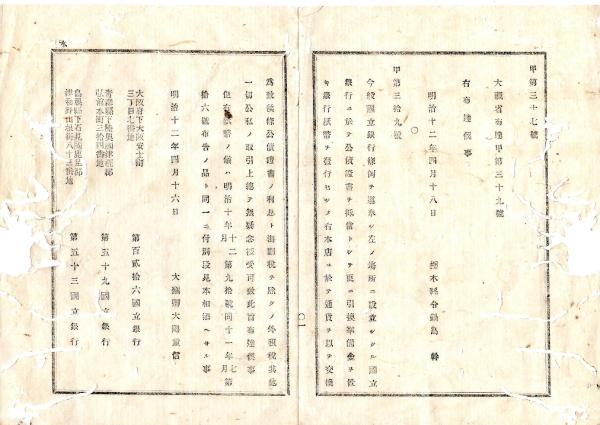 甲第三十七號
大藏省布達甲第三十九號
右布達候事
明治十二年四月十八日
栃木縣令鍋島 幹
甲第三拾九號
今般國立銀行條例ヲ遵奉シ左ノ場所ニ設立シタル國立
銀行ニ於テ公債證書ヲ抵當トシテ更ニ引換準備金ヲ設
ケ銀行紙幣ヲ發行セシメ右本店ニ於テ通貨ヲ以テ交換
爲致候條公債證書ノ利息ト海關税ヲ除クノ外租税其他
一切公私ノ取引上總テ無疑念授受可致此旨布達候事
但右紙幣ノ儀ハ明治十年十二月第九拾號同十一年七月第
拾六號布告ノ品ト同一ニ付別段見本相添ヘサル事
明治十二年四月十六日
大藏卿大隈重信
大阪府下大阪安土町
三丁目七番地
第百貳拾六國立銀行
青森縣下陸奥國津輕郡
弘前本町三拾四番地
第五十九國立銀行
島根縣下石見國鹿足郡
第五十三國立銀行